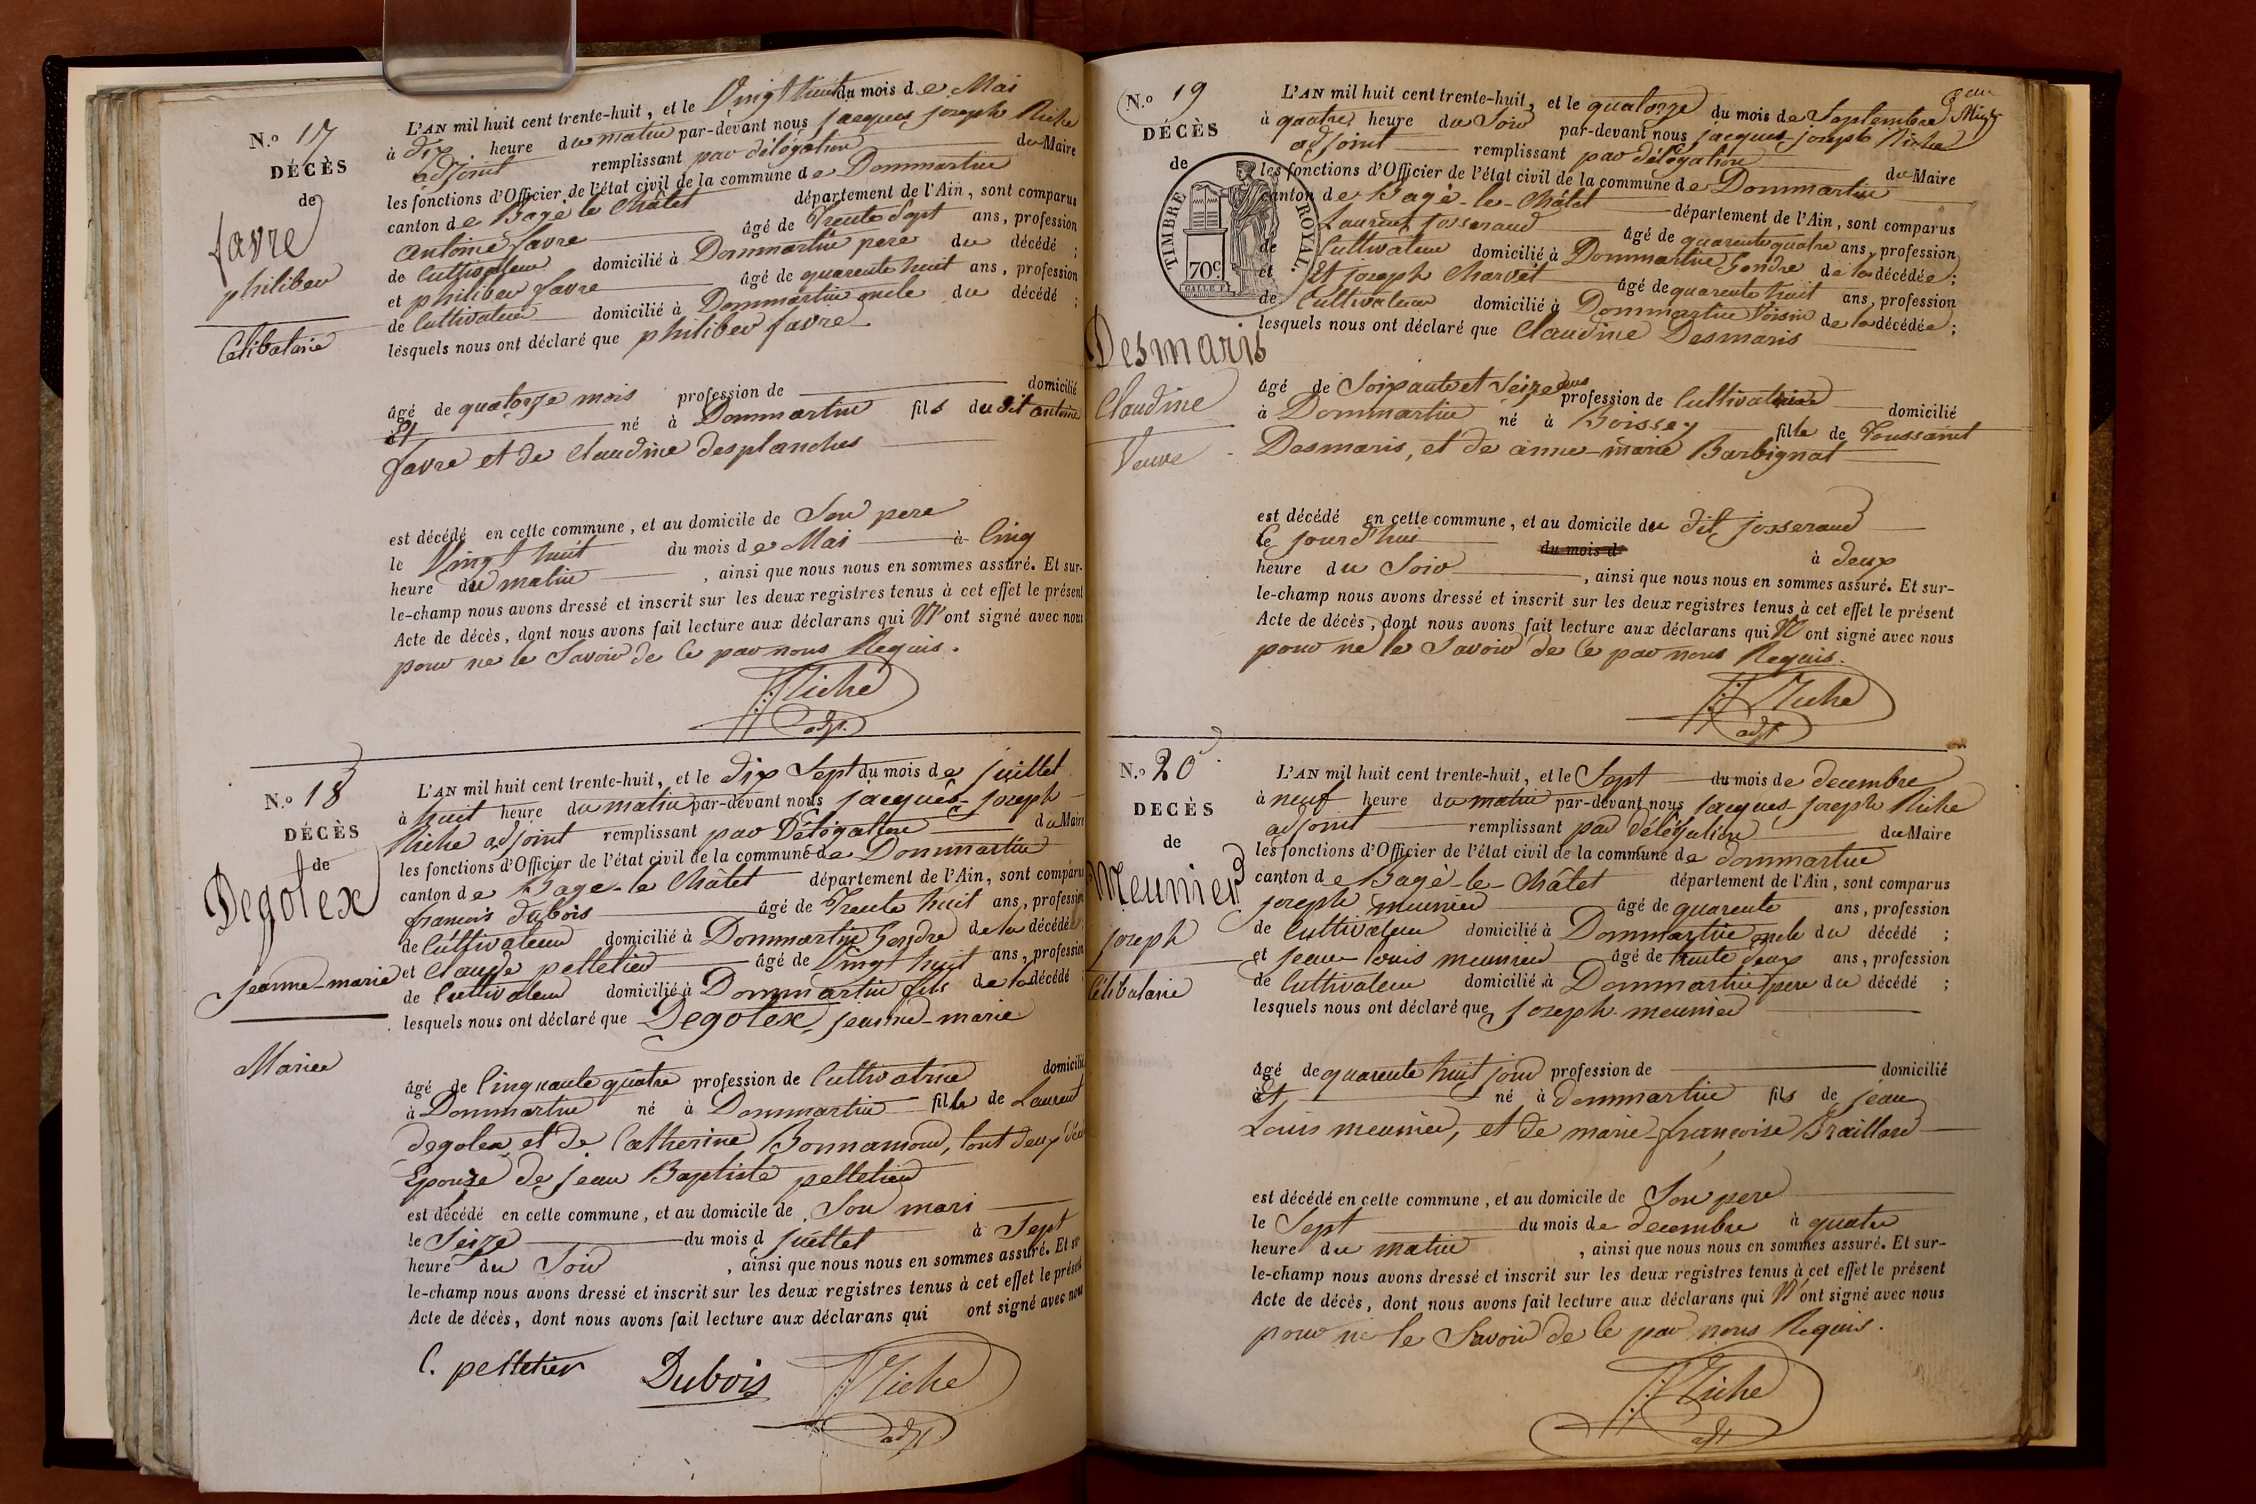 N.o 17
DÉCÈS
de
favre
philiber
Celibataire
L'AN mil huit cent trente-huit, et le Vingt huit du mois de Mai
à dix heure du matin par-devant nous jacques joseph Riche
adjoint remplissant par délégation du Maire
les fonctions d'Officier de l'état civil de la commune de Dommartin
canton de Bagé le Châtel département de l'Ain, sont comparus
antoine favre âgé de Trente Sept ans, profession
de Cultivateur domicilié à Dommartin pere du décédé ;
et philiber favre âgé de quarente huit ans, profession
de Cultivateur domicilié à Dommartin oncle du décédé ;
lesquels nous ont déclaré que philiber favre
âgé de quatorze mois profession de domicilié
à né à Dommartin fils du dit antoine
favre et de Claudine desplanches
est décédé en cette commune, et au domicile de Son pere
le Vingt huit du mois de Mai à Cinq
heure du matin , ainsi que nous nous en sommes assuré. Et sur-
le-champ nous avons dressé et inscrit sur les deux registres tenus à cet effet le présent
Acte de décès, dont nous avons fait lecture aux déclarans qui N'ont signé avec nous
pour ne le Savoir de Ce par nous Requis.
Riche
adj.
N.o 18
DÉCÈS
de
Degolex
jeanne-marie
Mariee
L'AN mil huit cent trente-huit, et le dix Sept du mois de juillet
à huit heure du matin par-devant nous jacques-joseph
Riche adjoint remplissant par Délégation du Maire
les fonctions d'Officier de l'état civil de la commune de Dommartin
canton de Bagé-le Châtel département de l'Ain, sont comparu
francois dubois âgé de Trente huit ans, profession
de Cultivateur domicilié à Dommartin Gendre de la décédée ;
et Claude pelletier âgé de Vingt huit ans, profession
de Cultivateur domicilié à Dommartin fils de la décédé
lesquels nous ont déclaré que Degolex, jeanne-marie
âgé de Cinquante quatre profession de Cultivatrice domicilié
à Dommartin né à Dommartin fille de Laurent
degolex et de Catherine Bonnamour, tout deux
Epouse de jean Baptiste pelletier
est décédé en cette commune, et au domicile de Son mari
le Seize du mois d juillet à Sept
heure du Soir , ainsi que nous nous en sommes assuré. Et
le-champ nous avons dressé et inscrit sur les deux registres tenus à cet effet le présent
Acte de décès, dont nous avons fait lecture aux déclarans qui ont signé avec nous
C. pelletier Dubois Riche
adjt
N.o 19
DÉCÈS
de
TIMBRE ROYAL.
70c
Desmaris
Claudine
Veuve
L'AN mil huit cent trente-huit, et le quatorze du mois de Septembre
à quatre heure du Soir par-devant nous jacques-joseph Riche
adjoint remplissant par délégation du Maire
les fonctions d'Officier de l'état civil de la commune de Dommartin
canton de Bagé-le-Châtel département de l'Ain, sont comparus
Laurent josserand âgé de quarente quatre ans, profession
de Cultivateur domicilié à Dommartin Gendre de la décédée ;
et Et joseph Charvet âgé de quarente huit ans, profession
de Cultivateur domicilié à Dommartin Voisin de la décédée ;
lesquels nous ont déclaré que Claudine Desmaris
âgé de Soixante et Seize ans profession de Cultivatrice domicilié
à Dommartin né à Boissey fille de Toussaint
Desmaris, et de anne-marie Barbignat
est décédé en cette commune, et au domicile du dit josserand
le jourd'hui du mois d à deux
heure du Soir , ainsi que nous nous en sommes assuré. Et sur-
le-champ nous avons dressé et inscrit sur les deux registres tenus à cet effet le présent
Acte de décès, dont nous avons fait lecture aux déclarans qui N'ont signé avec nous
pour ne le Savoir de Ce par nous Requis.
Riche
adjt
N.o 20
DECÈS
de
Meunier
joseph
Célibataire
L'AN mil huit cent trente-huit, et le Sept du mois de decembre
à neuf heure du matin par-devant nous jacques-joseph Riche
adjoint remplissant par délégation du Maire
les fonctions d'Officier de l'état civil de la commune de dommartin
canton de Bagé-le-Châtel département de l'Ain, sont comparus
joseph meunier âgé de quarente ans, profession
de Cultivateur domicilié à Dommartin oncle du décédé ;
et jean louis meunier âgé de trente deux ans, profession
de Cultivateur domicilié à Dommartin pere du décédé ;
lesquels nous ont déclaré que joseph meunier
âgé de quarente huit jour profession de domicilié
à né à dommartin fils de jean
Louis meunier, et de marie-françoise Braillard
est décédé en cette commune, et au domicile de Son pere
le Sept du mois de decembre à quatre
heure du matin , ainsi que nous nous en sommes assuré. Et sur-
le-champ nous avons dressé et inscrit sur les deux registres tenus à cet effet le présent
Acte de décès, dont nous avons fait lecture aux déclarans qui N'ont signé avec nous
pour ne le Savoir de Ce par nous Requis.
Riche
adjt